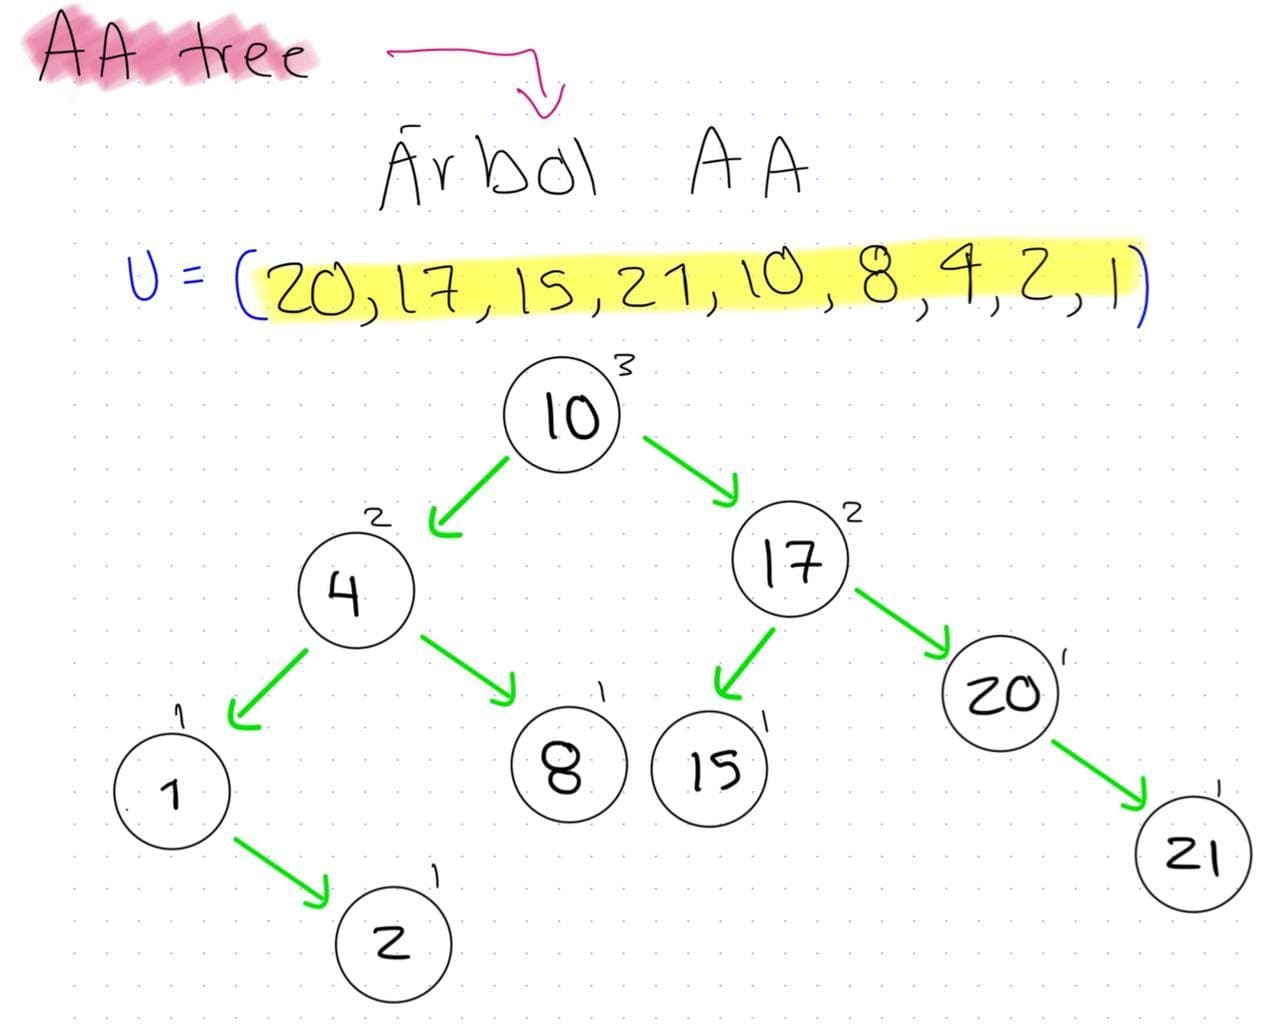 AA tree
Árbol AA
U = (20, 17, 15, 21, 10, 8, 4, 2, 1)
10 3
4 2
17 2
20 1
1 1
8 1
15 1
21 1
2 1